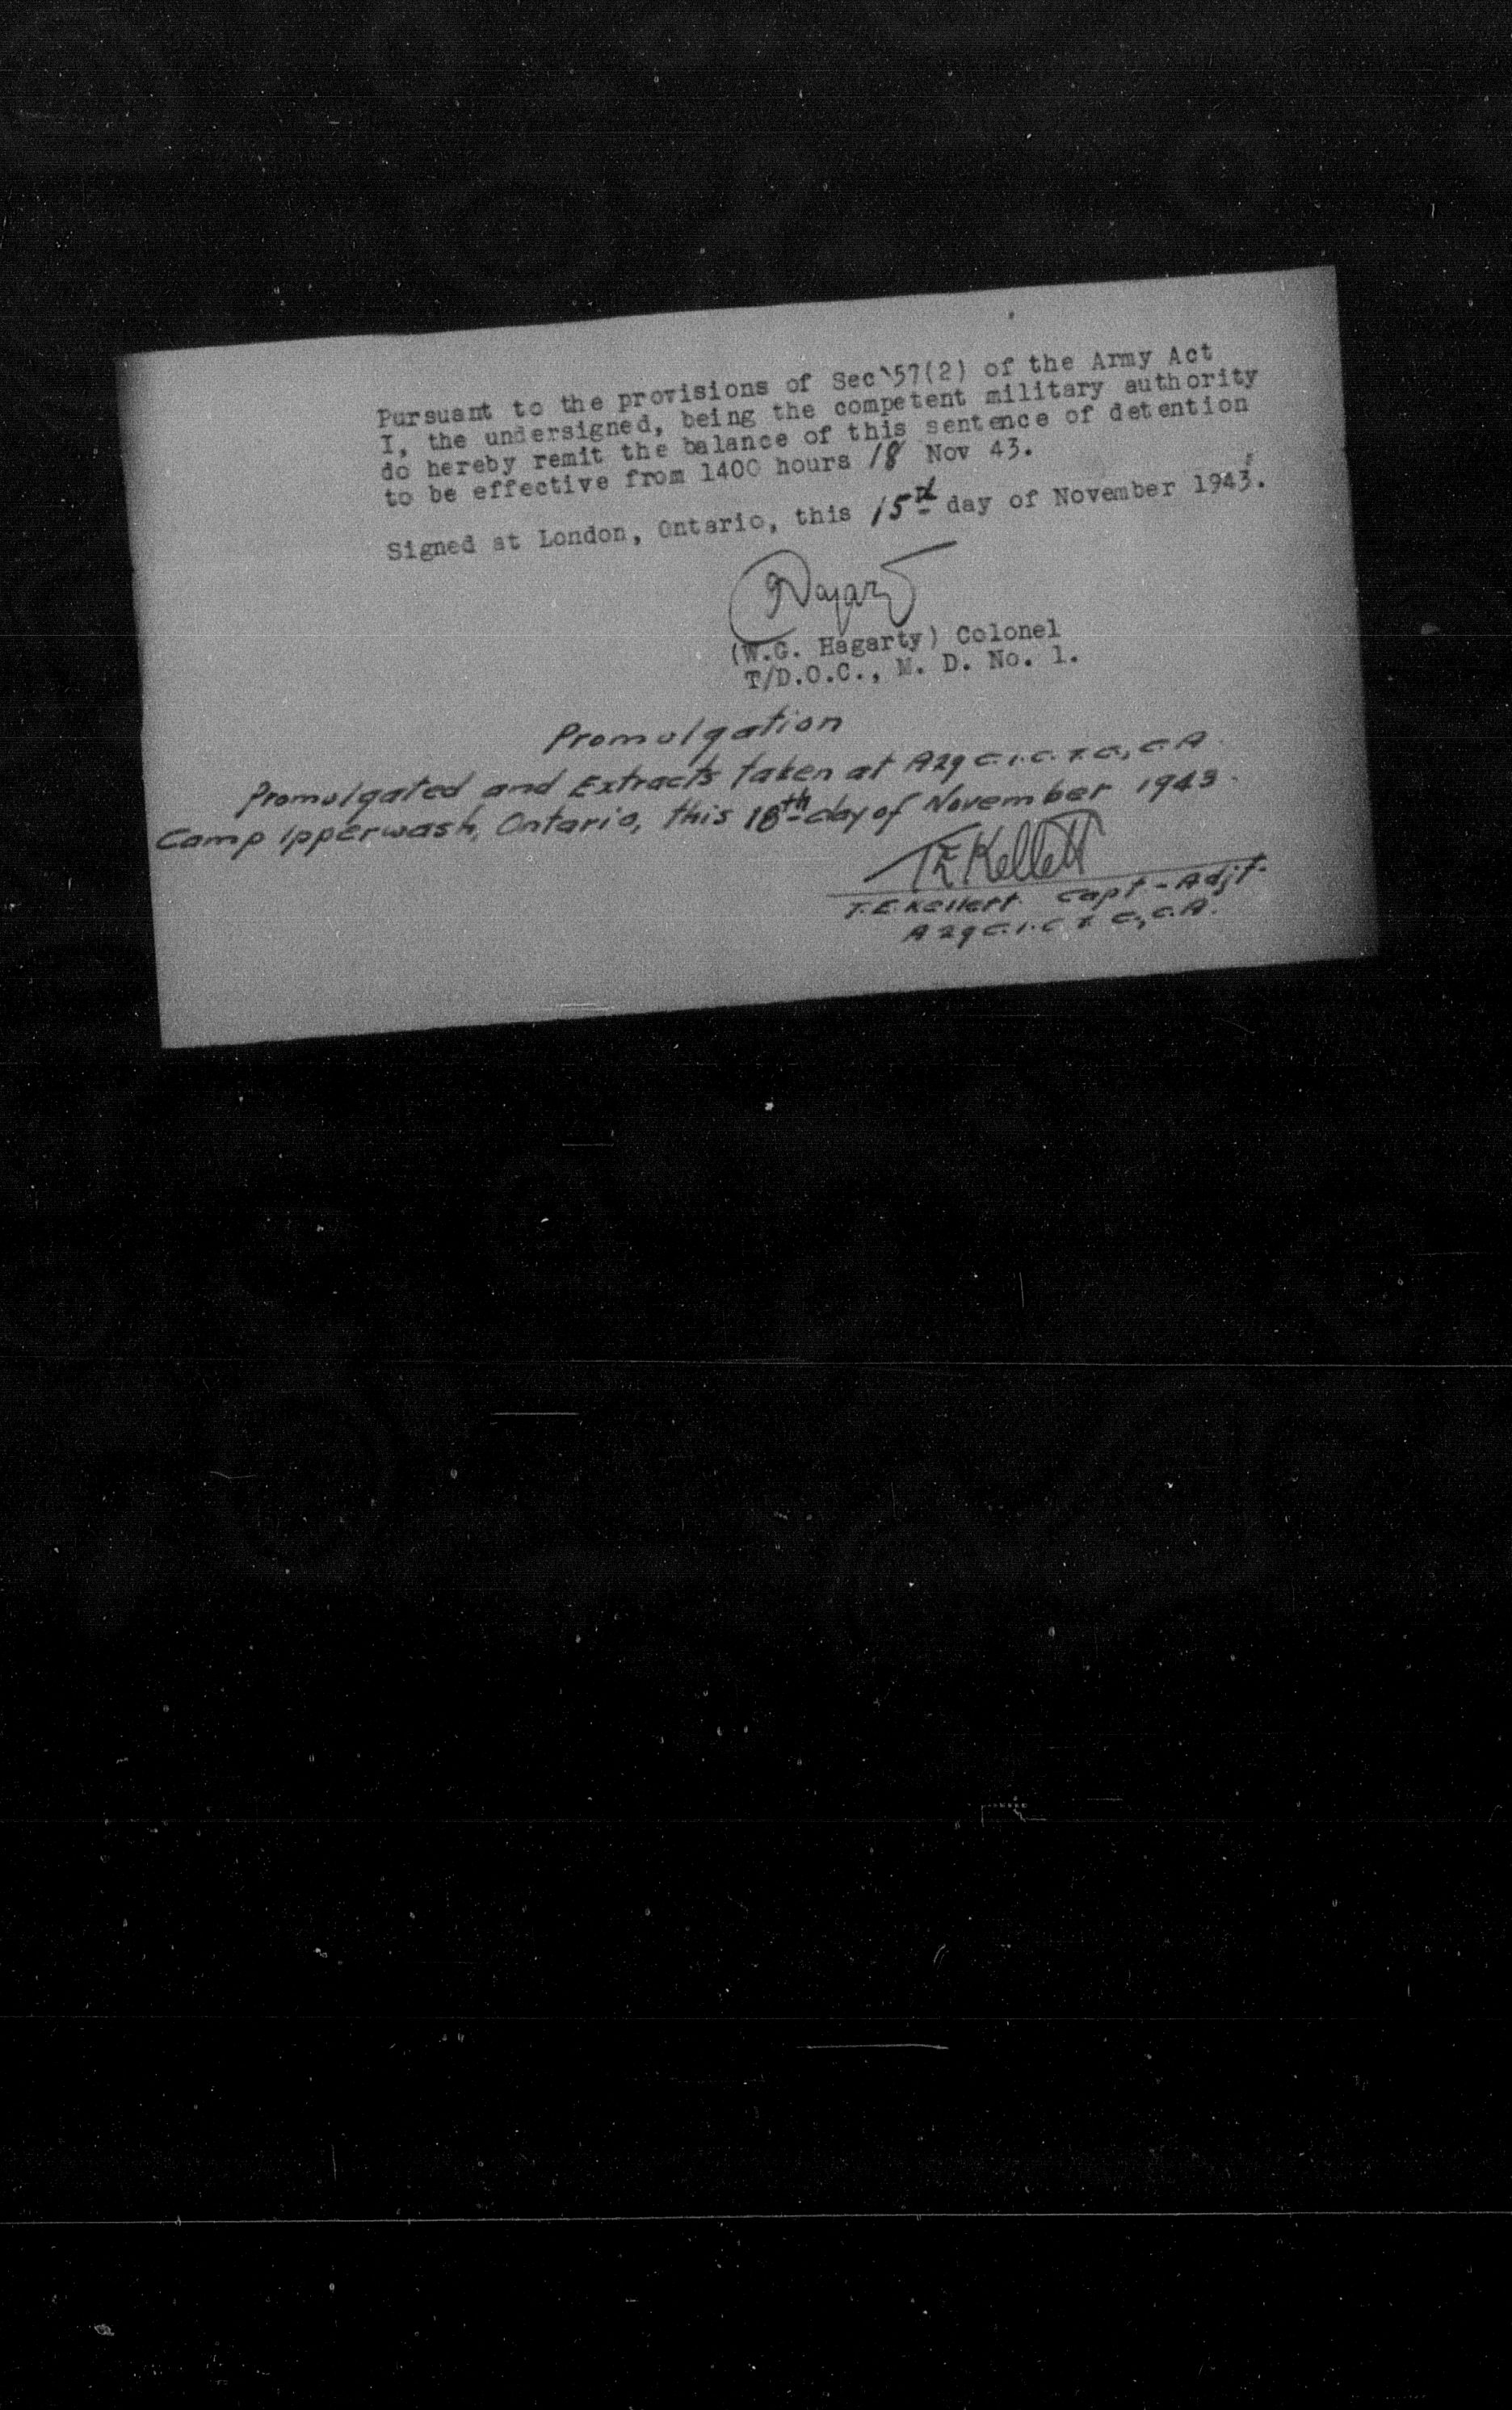 Pursuant to the provisions of Sec 57(2) of the Army Act
I, the undersigned, being the competent military authority
do hereby remit the balance of this sentence of detention
to be effective from 1400 hours 18 Nov 43.
Signed at London, Ontario, this 15th day of November 1943.
(W.G. Hagarty) Colonel
T/D.O.C., M. D. No. 1.
Promulgation
Promulgated and Extracts taken at A29 C.I.C.T.C., C.A.
Camp Ipperwash, Ontario, this 18th day of November 1943.
T E Kellett
T.E. Kellett. Capt-Adjt-
A29 C.I.C.T.C., C.A.